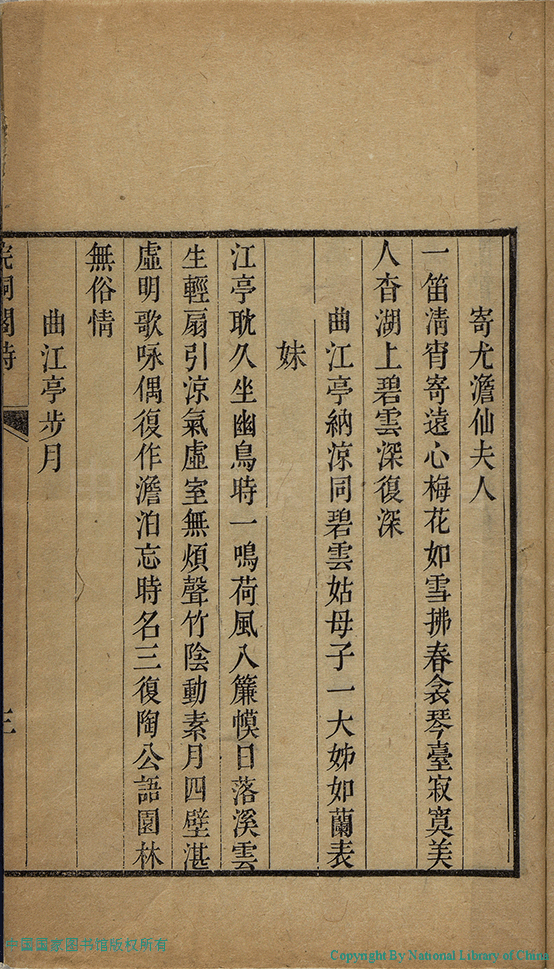 寄尤澹仙夫人
一笛清宵寄遠心梅花如雪拂春衾琴臺寂寞美
人杳湖上碧雲深復深
曲江亭納涼同碧雲姑母子一大姊如蘭表
妹
江亭耽久坐幽鳥時一鳴荷風入簾幙日落溪雲
生輕扇引涼氣虛室無煩聲竹陰動素月四壁湛
虛明歌咏偶復作澹泊忘時名三復陶公語園林
無俗情
曲江亭步月
三
中国国家图书馆版权所有
Copyright By National Library of China